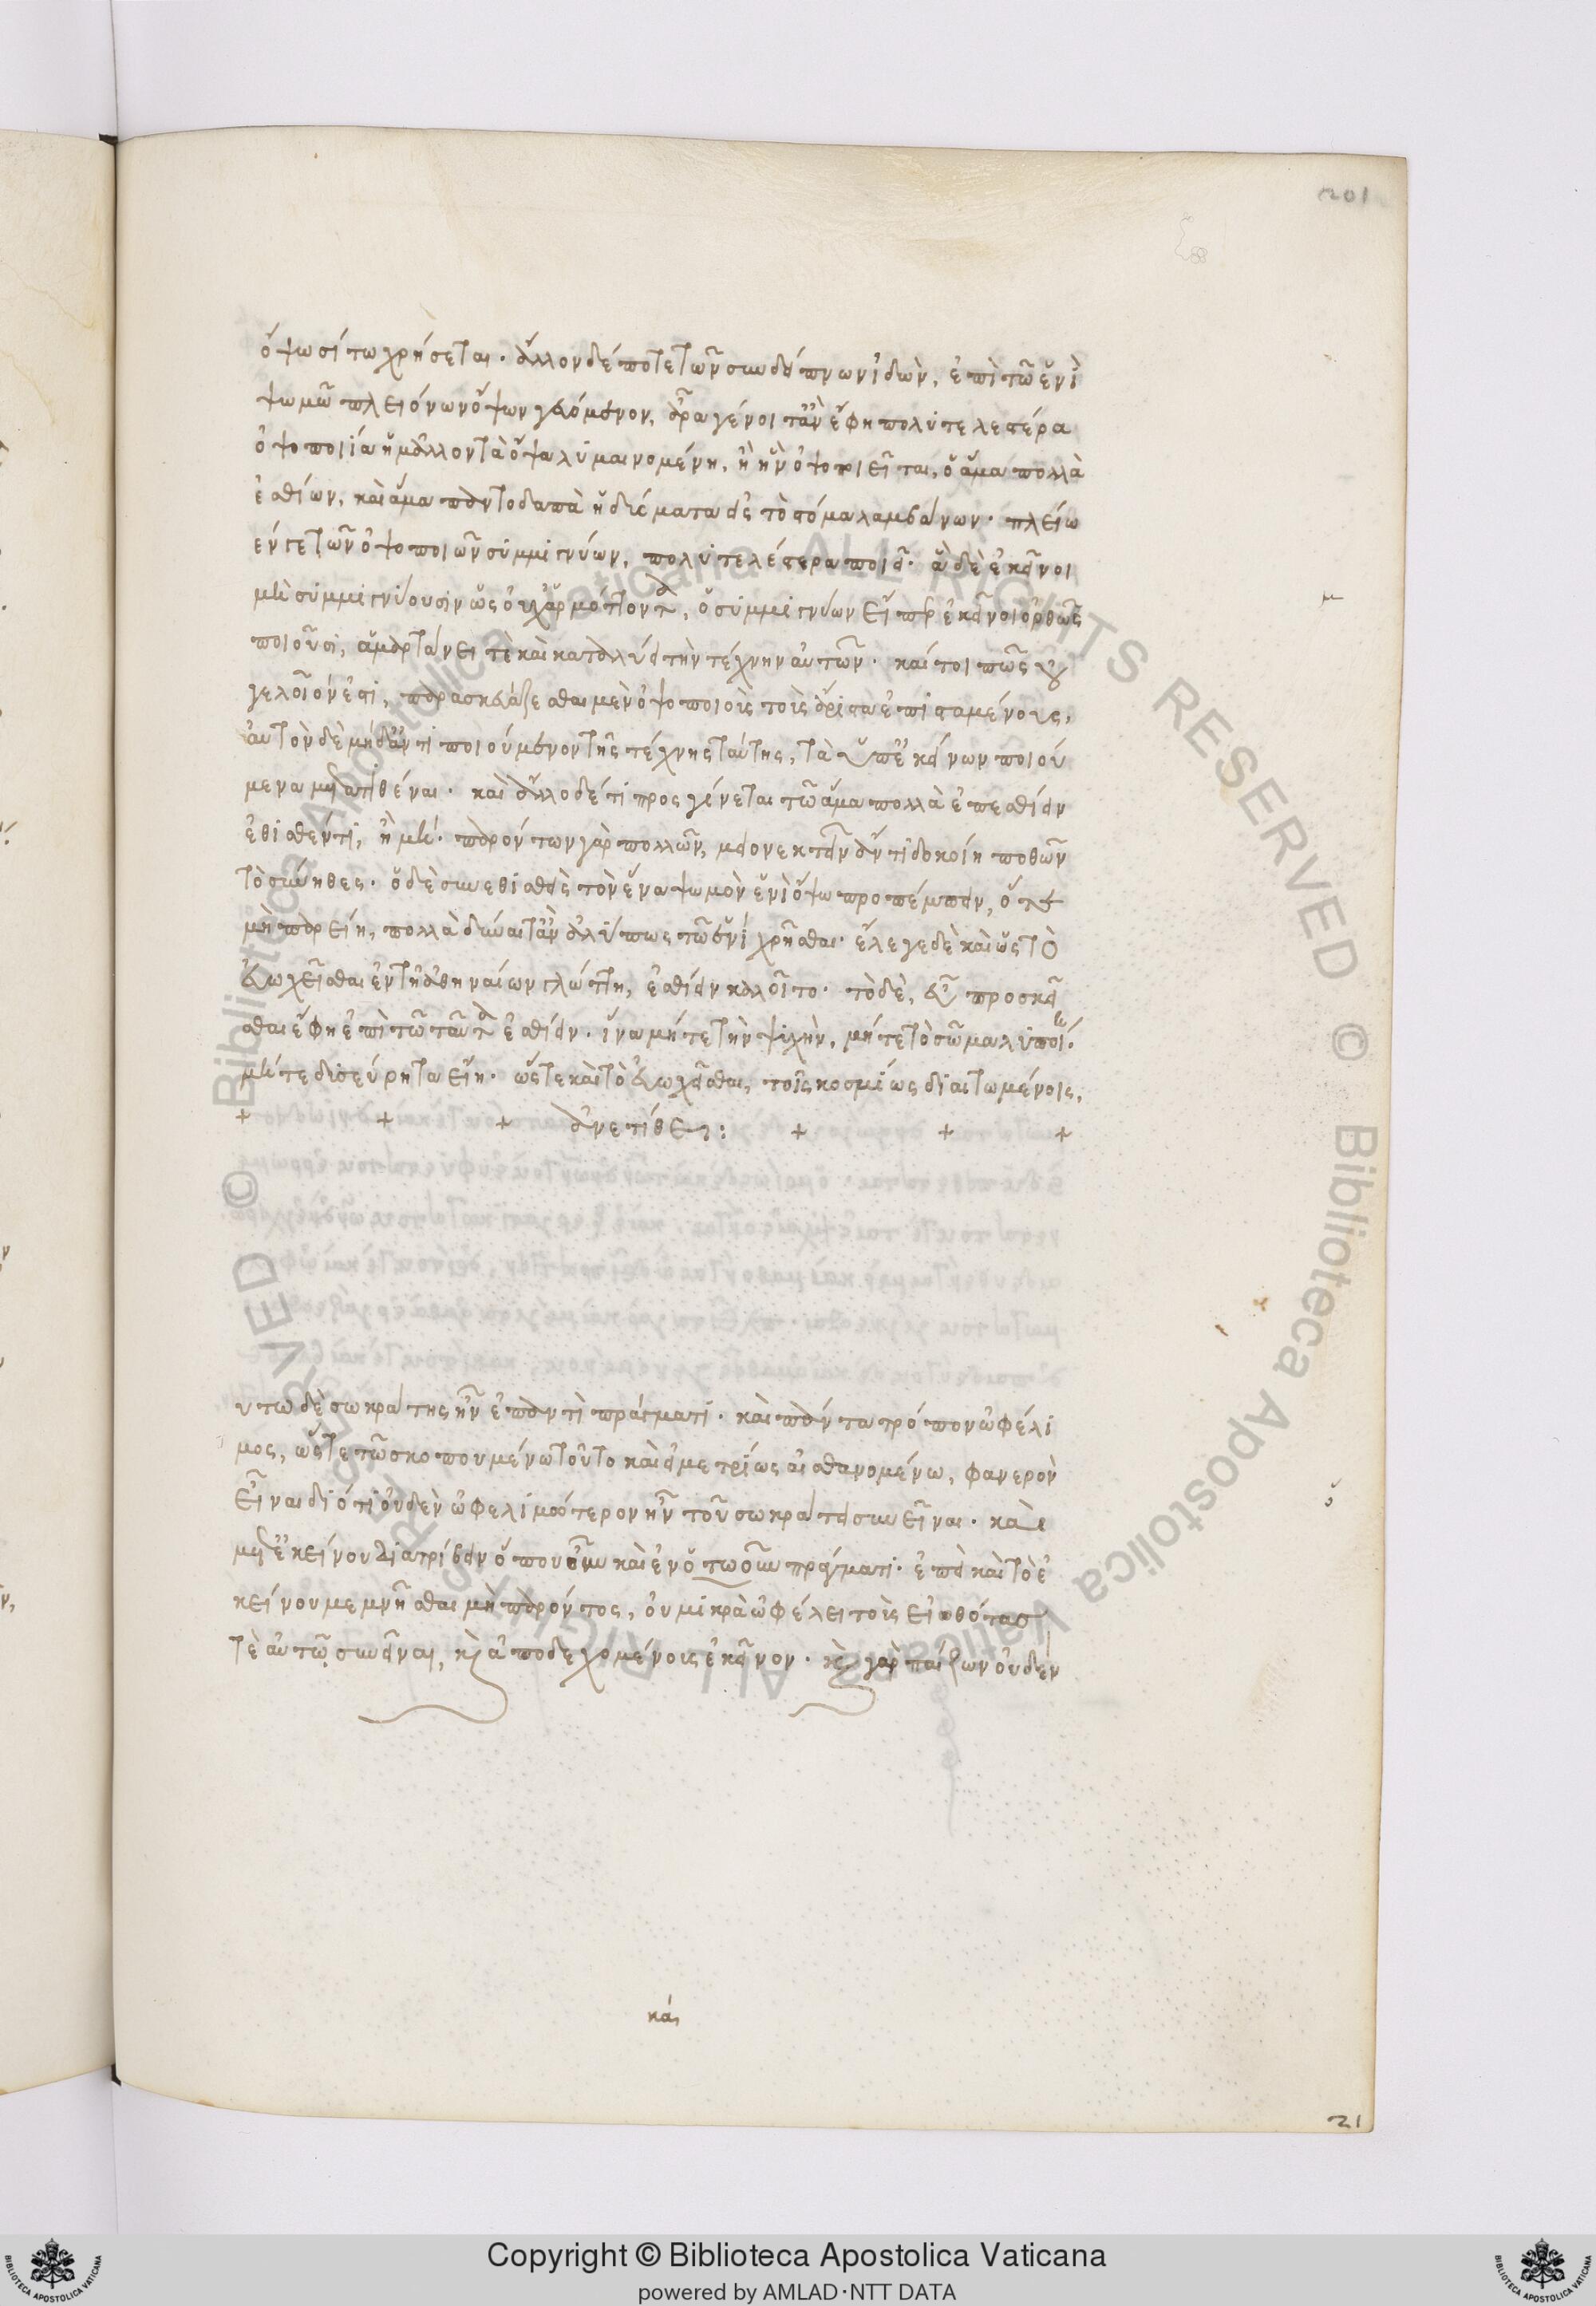 201
ὄψω σίτω χρήσεται. ἄλλον δέ ποτε τῶν συνδείπνων ἰδὼν, ἐπὶ τῶ ἑνὶ
ψωμῶ πλειόνων ὄψων γευόμενον, ἆρα γένοιτ' ἂν ἔφη πολυτελεστέρα
ὀψοποιία ἢ μᾶλλον τὰ ὄψα λυμαινομένη, ἢ ἣν ὀψοποιεῖται, ὁ ἅμα πολλὰ
ἐσθίων, καὶ ἅμα παντοδαπὰ ἡδύσματα εἰς τὸ στόμα λαμβάνων. πλείω
μέν γε τῶν ὀψοποιῶν συμμιγνύων, πολυτελέστερα ποιεῖ. ἃ δὲ ἐκεῖνοι
μὴ συμμιγνύουσιν ὡς οὐχ ἁρμόττοντα, ὁ συμμιγνύων εἴπερ ἐκεῖνοι ὀρθῶς
ποιοῦσι, ἁμαρτάνει τὲ καὶ καταλύει τὴν τέχνην αὐτῶν. καίτοι πῶς οὐ
γελοῖόν ἐστι, παρασκευάζεσθαι μὲν ὀψοποιοὺς τοὺς ἄριστα ἐπισταμένους,
αὐτὸν δὲ μηδ' ἀντιποιούμενον τῆς τέχνης ταύτης, τὰ ὑπ' ἐκείνων ποιού
μενα μετατιθέναι. καὶ ἄλλο δέ τι προσγίνεται τῶ ἅμα πολλὰ ἐπεσθίειν
ἐθισθέντι, μὴ παρόντων γὰρ πολλῶν, μειονεκτεῖν ἄν τι δοκοίη ποθῶν
τὸ σύνηθες. ὁ δὲ συνεθισθεὶς τὸν ἕνα ψωμὸν ἑνὶ ὄψω προπέμπειν, ὅτε
μὴ παρείη, πολλὰ δύναιτ' ἂν ἀλύπως τῶ ἑνὶ χρῆσθαι. ἔλεγε δὲ καὶ ὡς τὸ
εὐωχεῖσθαι ἐν τῆ ἀθηναίων γλώττη, ἐσθίειν καλοῖτο. τὸ δὲ, εὖ προσκεῖ
σθαι ἔφη ἐπὶ τῶ ταῦτα ἐσθίειν. ἅ μήτε τὴν ψυχὴν, μήτε τὸ σῶμα λυποίη.
μήτε δυσεύρητα εἴη. ὥστε καὶ τὸ εὐωχεῖσθαι, τοῖς κοσμίως διαιτωμένοις,
+ + + ἀνετίθει: + + +
υτω δὲ σωκράτης ἦν ἐν παντὶ πράγματι. καὶ πάντα τρόπον ὠφέλι
μος, ὥστε τῶ σκοπουμένω τοῦτο καὶ εἰ μετρίως αἰσθανομένω, φανερὸν
εἶναι διότι οὐδὲν ὠφελιμώτερον ἦν τοῦ σωκράτει συνεῖναι. καὶ
μετ' ἐκείνου διατρίβειν ὁπουοῦν καὶ ἐν ὁτωοῦν πράγματι. ἐπεὶ καὶ τὸ ἐ
κείνου μεμνῆσθαι μὴ παρόντος, οὐ μικρὰ ὠφέλει τοὺς εἰωθότας
τὲ αὐτῶ συνεῖναι, καὶ ἀποδεχομένους ἐκεῖνον. καὶ γὰρ παίζων οὐδὲν
κά
21